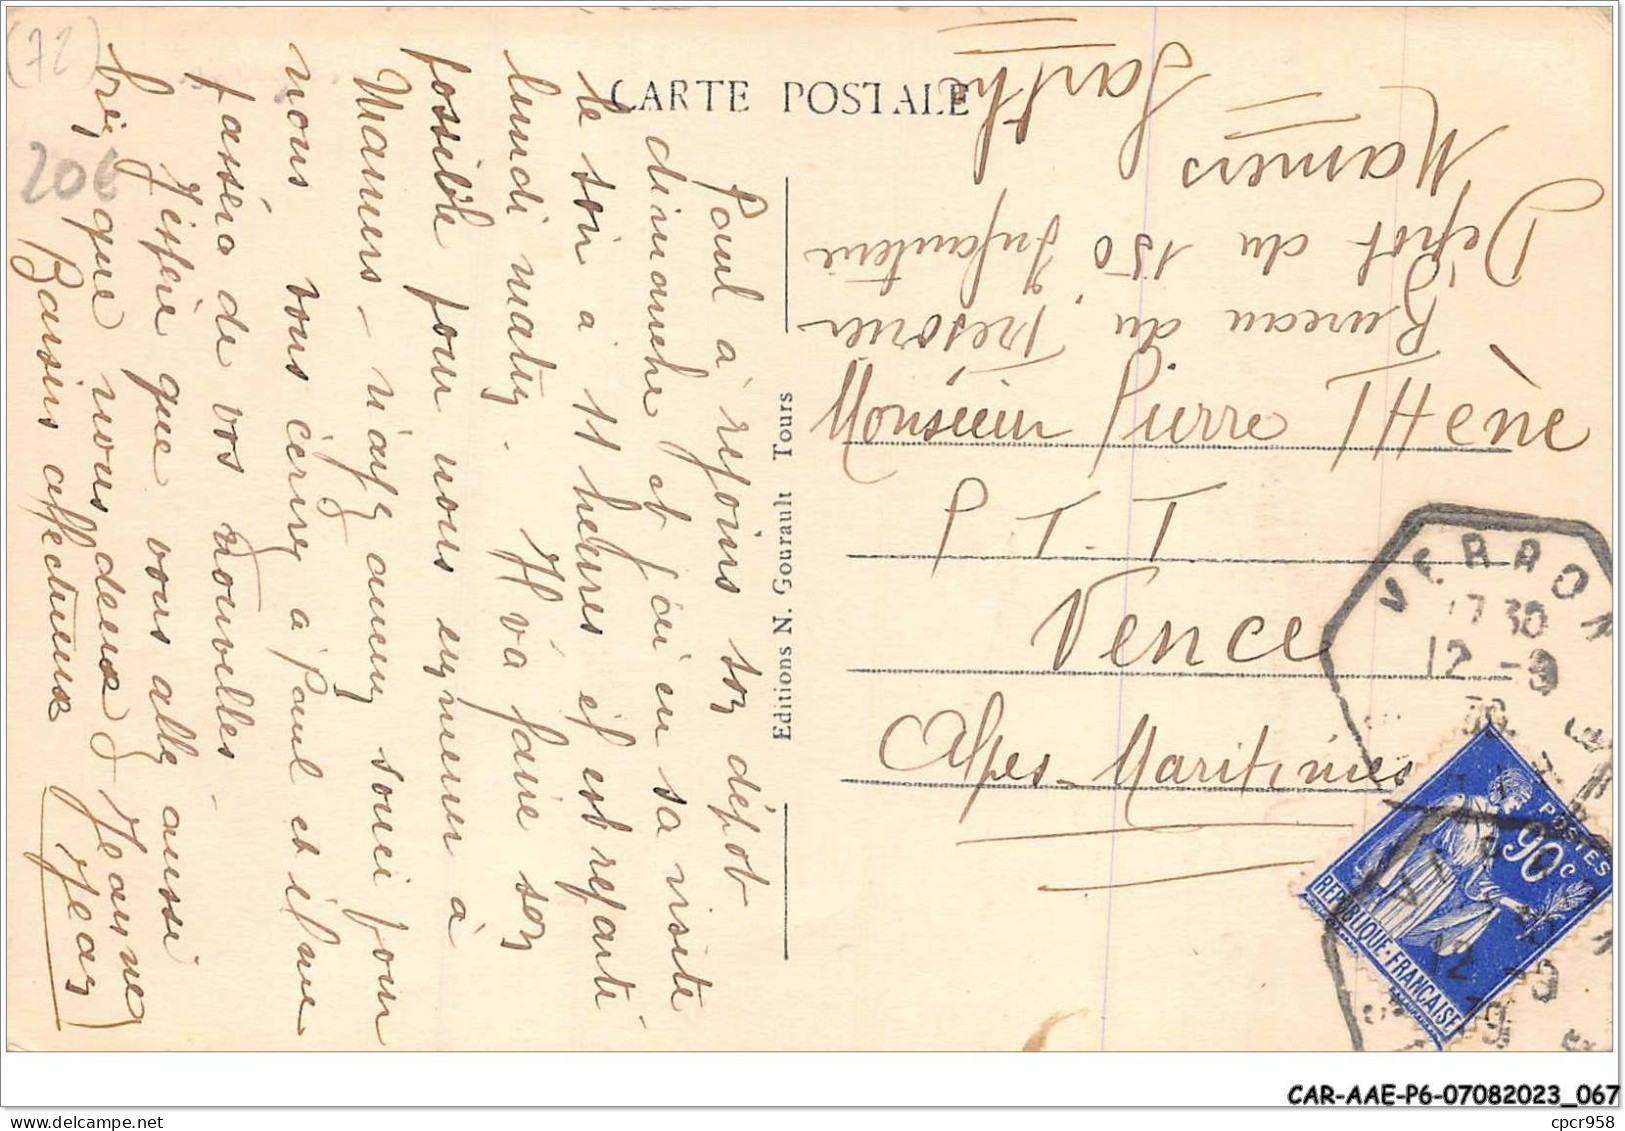 CARTE POSTALE
Paul a rejoins son dépot
dimanche et j'ai eu sa visite
le soir à 11 heures il est reparti
lundi matin. Il va faire son
possible pour nous emmener à
Mamers - n'ayez aucun souci pour
nous vous écrirez à Paul et il me
passera de vos nouvelles.
J'espère que vous allez aussi
bien que nous deux Jeanne
Baisers affectueux Jean
(72)
20€
Editions N. Gourault Tours
Monsieur Pierre THène
P.T.T
Vence
Alpes-Maritimes
Bureau du Trésorier
Dépot du 150 Infanterie
Mamers
Sarthe
VERRON
17 30
12 -9
39
POSTES
90c
REPUBLIQUE-FRANCAISE
12 -9
39
CAR-AAE-P6-07082023_067
cpcr958